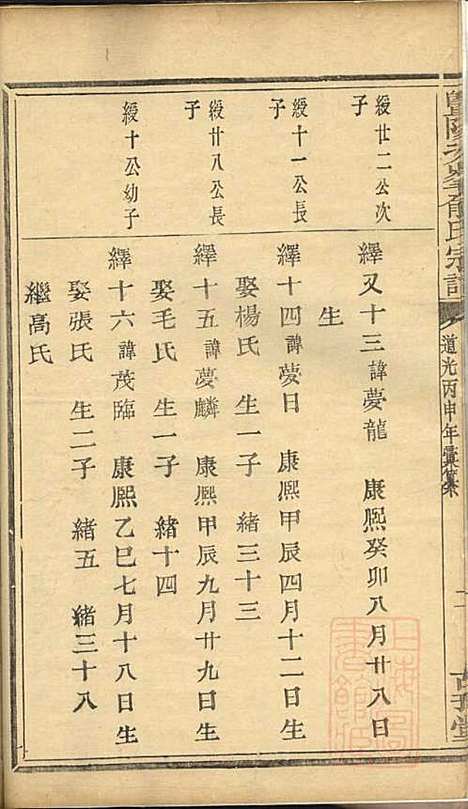 綬廿二公次
子
繹又十三諱夢龍 康熙癸卯八月廿八日
生
綬十一公長
子
繹十四諱夢日 康熙甲辰四月十二日生
娶楊氏 生一子 緒三十三
綬廿八公長
子
繹十五諱夢麟 康熙甲辰九月廿九日生
娶毛氏 生一子 緒十四
綬十公幼子
繹十六諱茂臨 康熙乙巳七月十八日生
娶張氏 生二子 緒五 緒三十八
繼高氏
道光丙申年彙纂